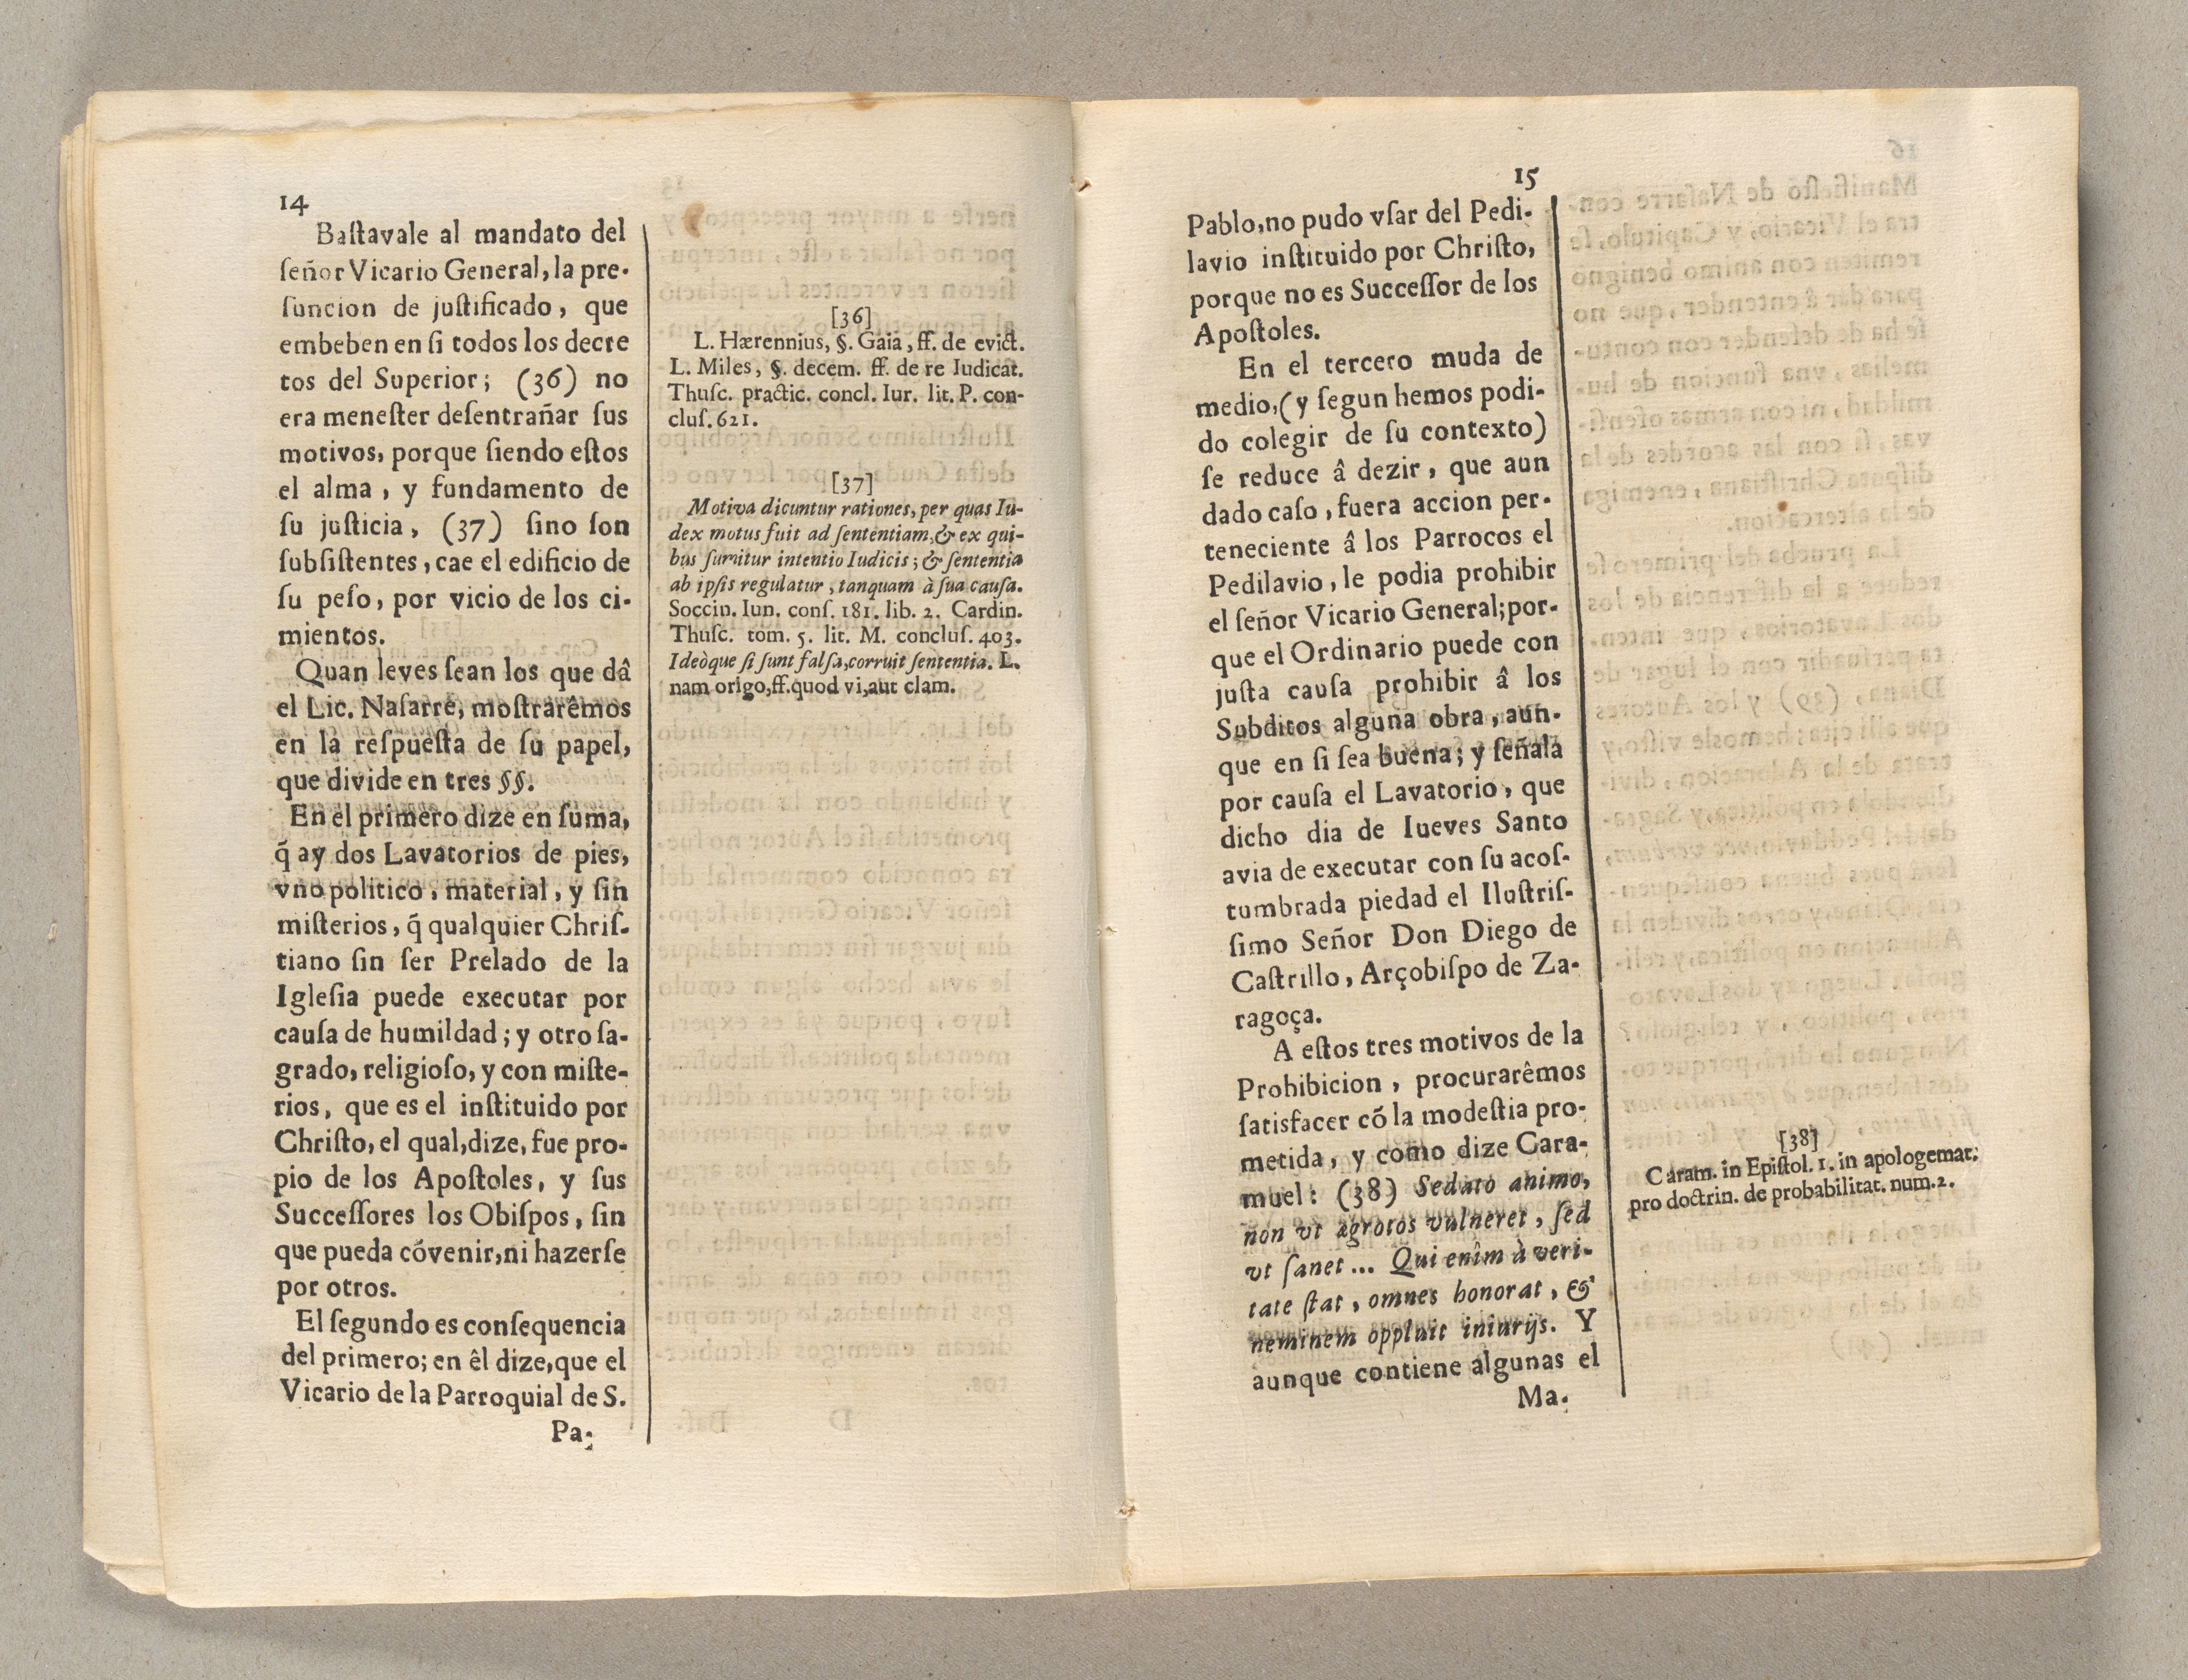 14
Baſtavale al mandato del
ſeñor Vicario General, la pre-
ſuncion de juſtificado, que
embeben en ſi todos los decre
tos del Superior; (36) no
era meneſter deſentrañar ſus
motivos, porque ſiendo eſtos
el alma, y fundamento de
ſu juſticia, (37) ſino ſon
ſubſiſtentes, cae el edificio de
ſu peſo, por vicio de los ci-
mientos.
Quan leves ſean los que dâ
el Lic. Naſarre, moſtrarêmos
en la reſpueſta de ſu papel,
que divide en tres §§.
En el primero dize en ſuma,
q̃ ay dos Lavatorios de pies,
vno politico, material, y ſin
miſterios, q̃ qualquier Chriſ-
tiano ſin ſer Prelado de la
Igleſia puede executar por
cauſa de humildad; y otro ſa-
grado, religioſo, y con miſte-
rios, que es el inſtituido por
Chriſto, el qual, dize, fue pro-
pio de los Apoſtoles, y ſus
Succeſſores los Obiſpos, ſin
que pueda cóvenir, ni hazerſe
por otros.
El ſegundo es conſequencia
del primero; en êl dize, que el
Vicario de la Parroquial de S.
Pa-
[36]
L. Hærennius, §. Gaia, ff. de evict.
L. Miles, §. decem. ff. de re Iudicat.
Thuſc. practic. concl. Iur. lit. P. con-
cluſ. 621.
[37]
Motiva dicuntur rationes, per quas Iu-
dex motus fuit ad ſententiam, & ex qui-
bus ſumitur intentio Iudicis; & ſententia
ab ipſis regulatur, tanquam à ſua cauſa.
Soccin. Iun. conſ. 181. lib. 2. Cardin.
Thuſc. tom. 5. lit. M. concluſ. 403.
Ideòque ſi ſunt falſa, corruit ſententia. L.
nam origo, ff. quod vi, aut clam.
15
Pablo, no pudo vſar del Pedi-
lavio inſtituido por Chriſto,
porque no es Succeſſor de los
Apoſtoles.
En el tercero muda de
medio, (y ſegun hemos podi-
do colegir de ſu contexto)
ſe reduce â dezir, que aun
dado caſo, fuera accion per-
teneciente â los Parrocos el
Pedilavio, le podia prohibir
el ſeñor Vicario General; por-
que el Ordinario puede con
juſta cauſa prohibir â los
Subditos alguna obra, aun-
que en ſi ſea buena; y ſeñala
por cauſa el Lavatorio, que
dicho dia de Iueves Santo
avia de executar con ſu acoſ-
tumbrada piedad el Iluſtriſ-
ſimo Señor Don Diego de
Caſtrillo, Arçobiſpo de Za-
ragoça.
A eſtos tres motivos de la
Prohibicion, procurarêmos
ſatisfacer có la modeſtia pro-
metida, y como dize Cara-
muel: (38) Sedato animo,
non vt ægrotos vulneret, ſed
vt ſanet... Qui enim à veri-
tate ſtat, omnes honorat, &
neminem oppluit iniurijs. Y
aunque contiene algunas el
Ma-
[38]
Caram. in Epiſtol. 1. in apologemat.
pro doctrin. de probabilitat. num. 2.